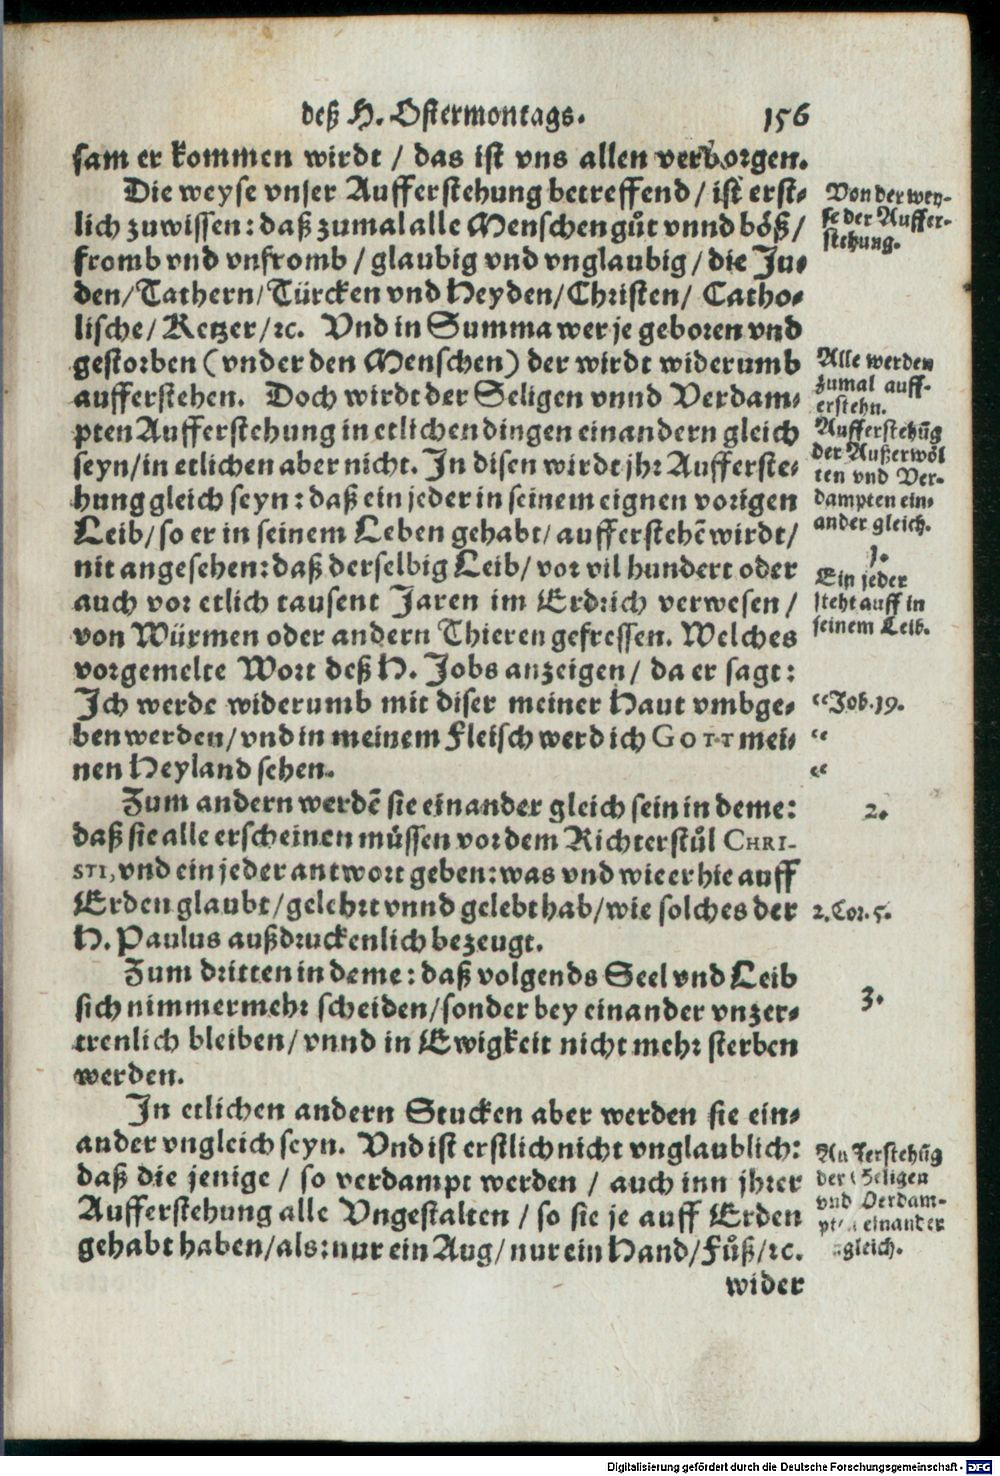 deß H. Ostermontags. 156
sam er kommen wirdt / das ist vns allen verborgen.
Die weyse vnser Aufferstehung betreffend / ist erst-
lich zuwissen: daß zumal alle Menschen gůt vnnd böß /
fromb vnd vnfromb / glaubig vnd vnglaubig / die Ju-
den / Tathern / Türcken vnd Heyden / Christen / Catho-
lische / Ketzer / ꝛc. Vnd in Summa wer je geboren vnd
gestorben (vnder den Menschen) der wirdt widerumb
aufferstehen. Doch wirdt der Seligen vnnd Verdam-
pten Aufferstehung in etlichen dingen einandern gleich
seyn / in etlichen aber nicht. In disen wirdt jhr Aufferste-
hung gleich seyn: daß ein jeder in seinem eignen vorigen
Leib / so er in seinem Leben gehabt / aufferstehẽ wirdt /
nit angesehen: daß derselbig Leib / vor vil hundert oder
auch vor etlich tausent Jaren im Erdrich verwesen /
von Würmen oder andern Thieren gefressen. Welches
vorgemelte Wort deß H. Jobs anzeigen / da er sagt:
Ich werde widerumb mit diser meiner Haut vmbge-
ben werden / vnd in meinem Fleisch werd ich GOTT mei-
nen Heyland sehen.
Zum andern werdẽ sie einander gleich sein in deme:
daß sie alle erscheinen müssen vor dem Richterstůl CHRI-
STI, vnd ein jeder antwort geben: was vnd wie er hie auff
Erden glaubt / gelehrt vnnd gelebt hab / wie solches der
H. Paulus außdruckenlich bezeugt.
Zum dritten in deme: daß volgends Seel vnd Leib
sich nimmermehr scheiden / sonder bey einander vnzer-
trenlich bleiben / vnnd in Ewigkeit nicht mehr sterben
werden.
In etlichen andern Stucken aber werden sie ein-
ander vngleich seyn. Vnd ist erstlich nicht vnglaublich:
daß die jenige / so verdampt werden / auch inn jhrer
Aufferstehung alle Vngestalten / so sie je auff Erden
gehabt haben / als: nur ein Aug / nur ein Hand / Fůß / ꝛc.
wider
Von der wey-
se der Auffer-
stehung.
Alle werden
zumal auff-
erstehn.
Aufferstehũg
der Außerwöl
ten vnd Ver-
dampten ein-
ander gleich.
1.
Ein jeder
steht auff in
seinem Leib.
“Job. 19.
“
“
2.
2. Cor. 5.
3.
Aufferstehũg
der Seligen
vnd Verdam-
pten einander
gleich.
Digitalisierung gefördert durch die Deutsche Forschungsgemeinschaft - DFG